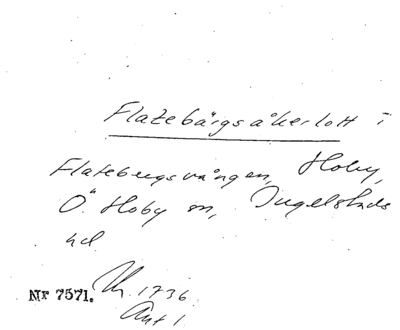 Flatebärgsåkerlott i
Flatebergsvången, Hoby,
Ö. Hoby sn, Ingelstads
hd
Nr 7571. 1736
Akt 1